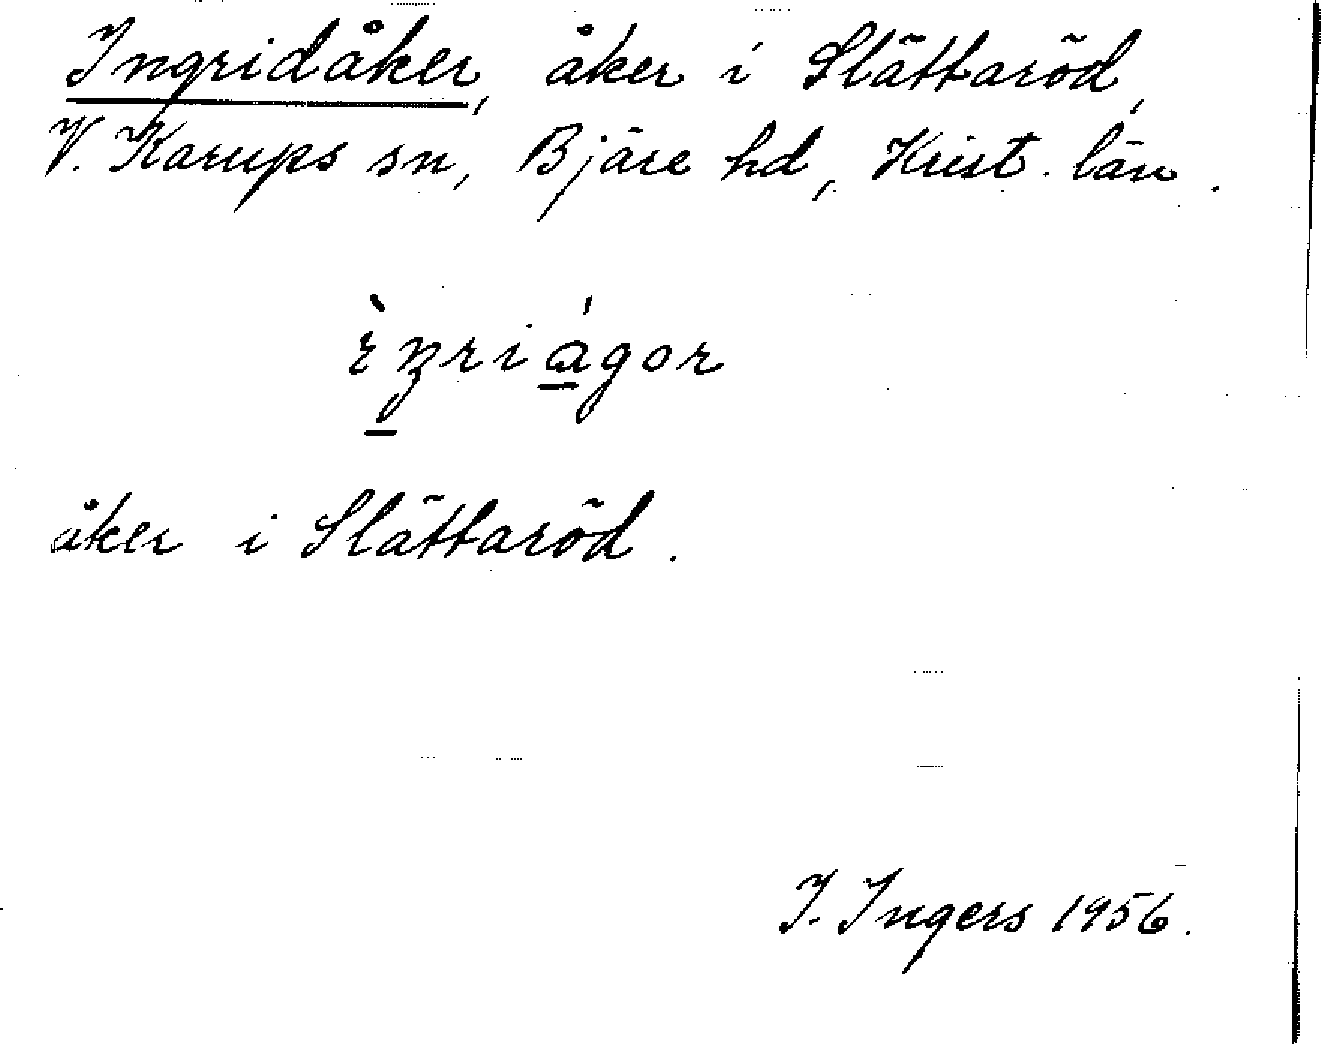 Ingridåker, åker i Slättaröd,
V. Karups sn, Bjäre hd, Krist. län.
åker i Slättaröd.
I. Ingers 1956.